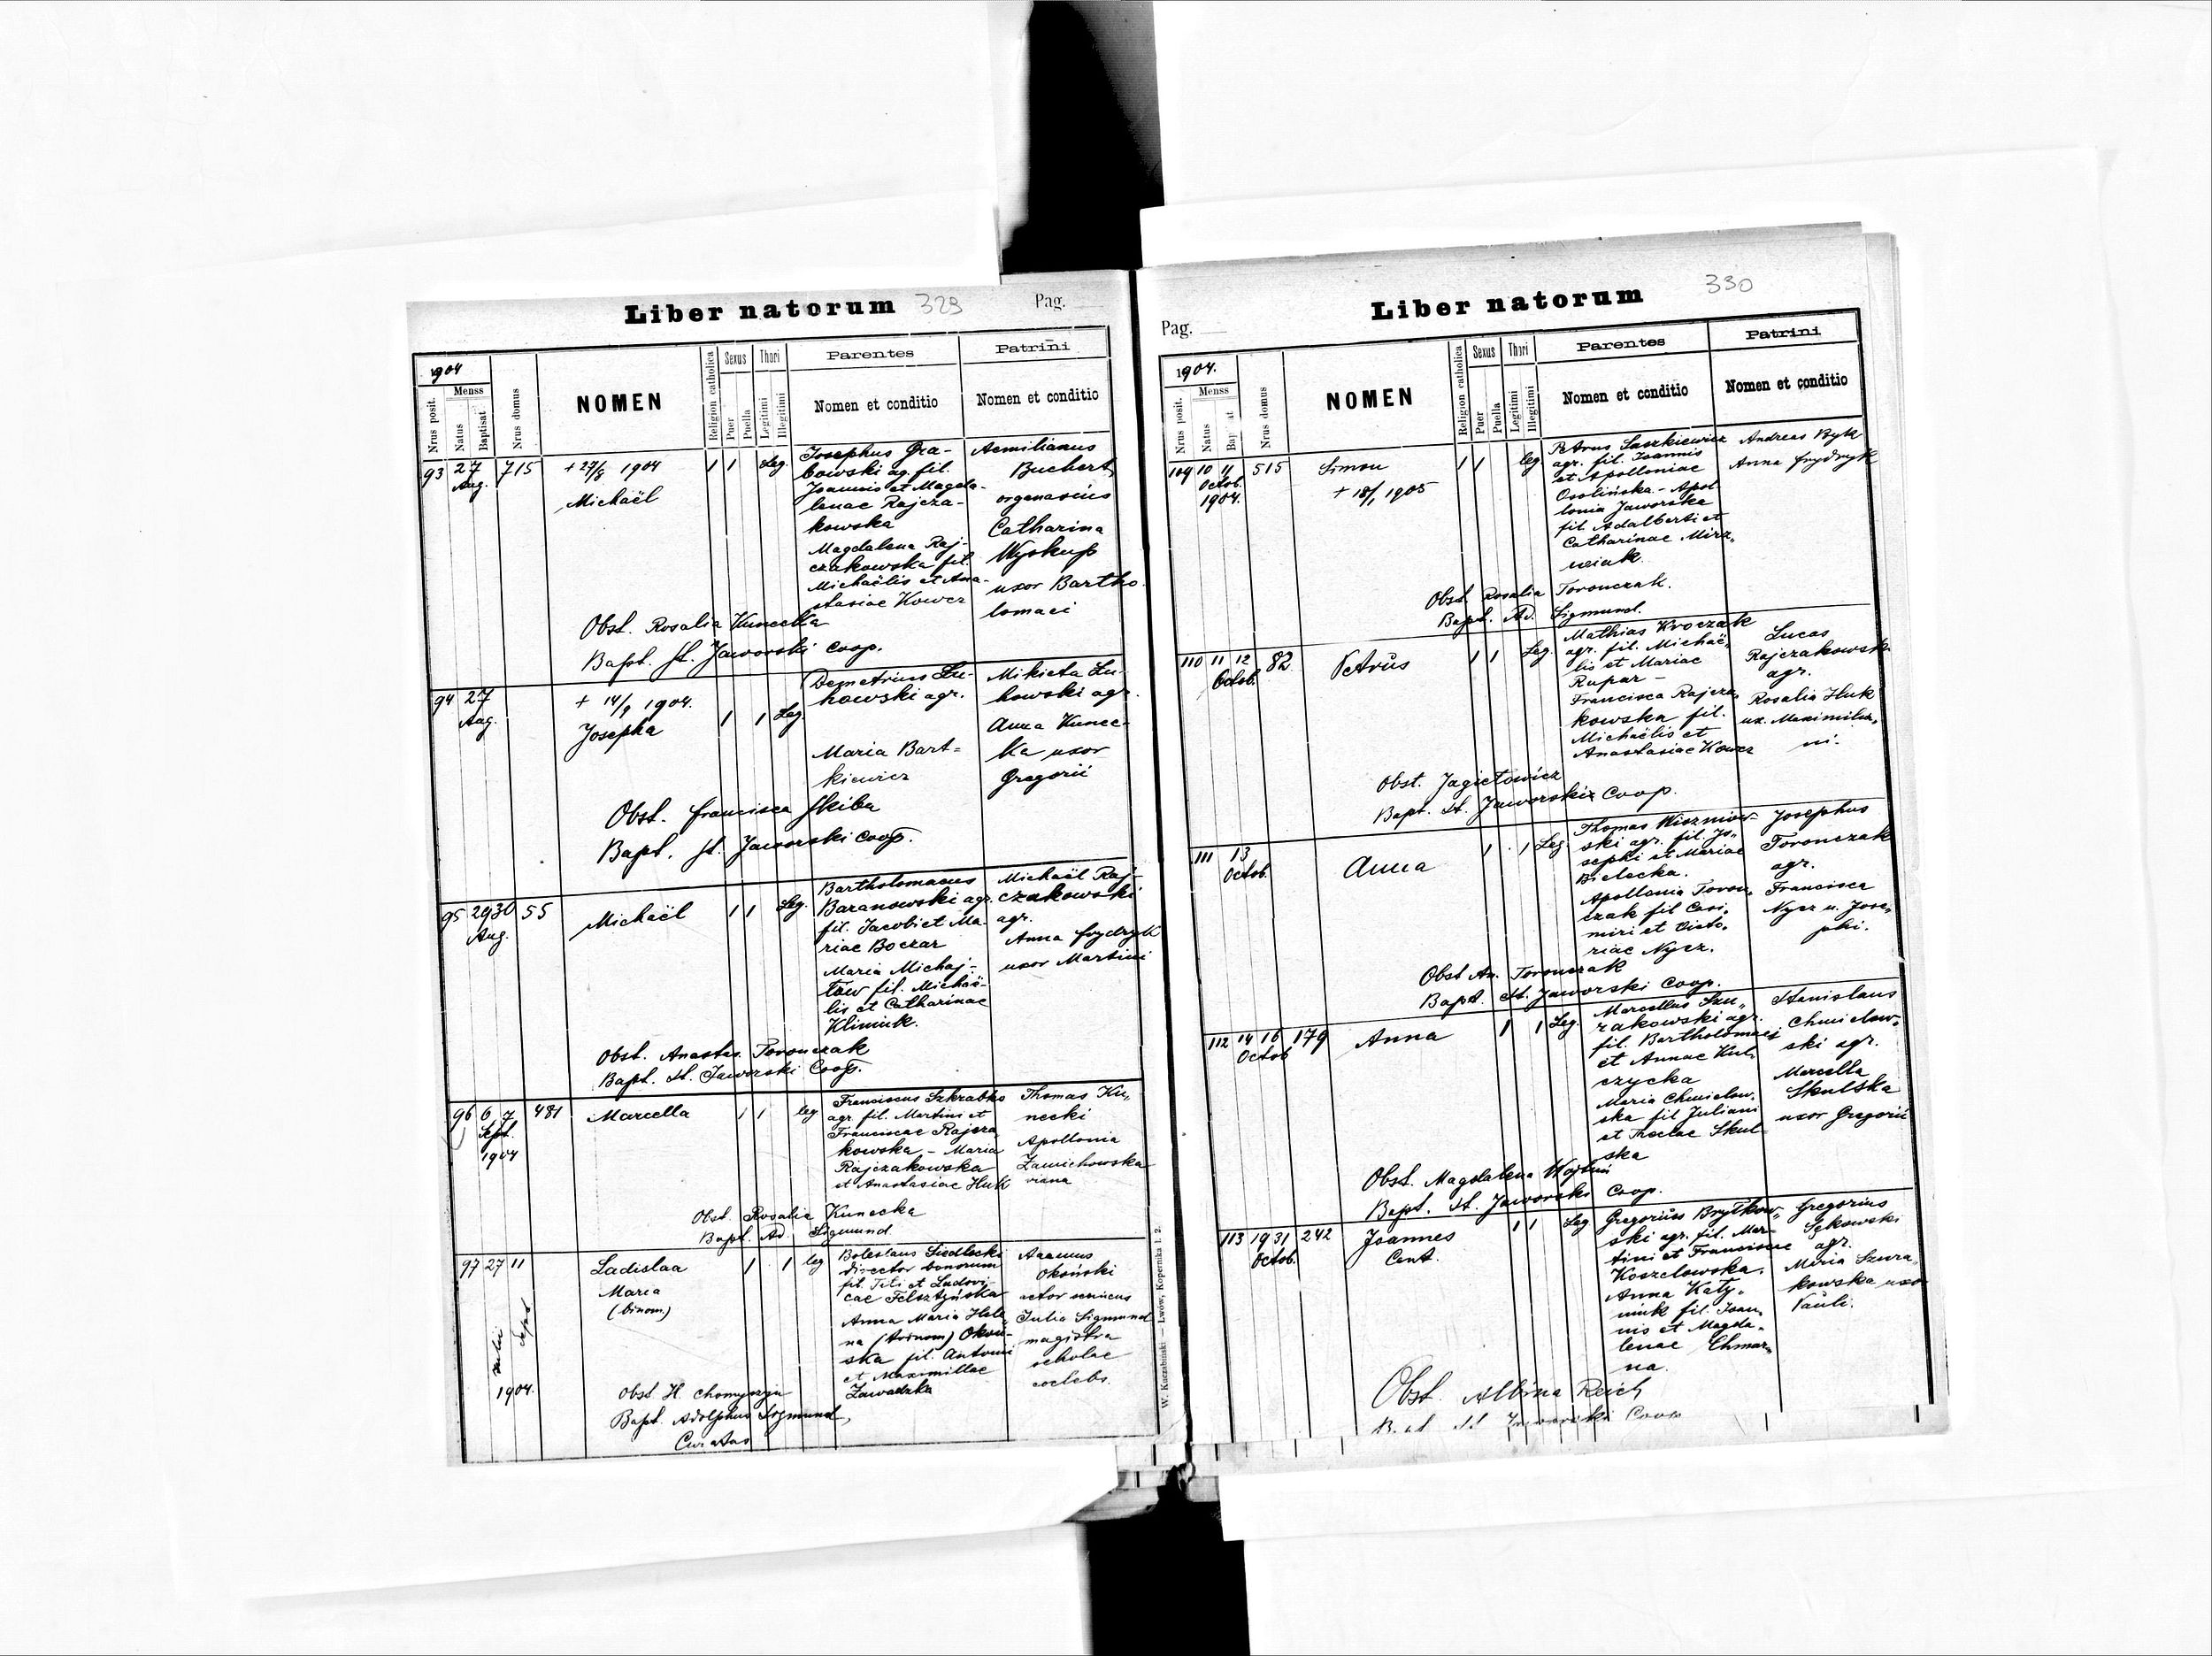 Liber natorum 329 Pag.
1904
Nrus posit.
Menss
Natus
Baptisat
Nrus domus
NOMEN
Religion catholica
Sexus
Puer
Puella
Thori
Legitimi
Illegitimi
Parentes
Nomen et conditio
Patrini
Nomen et conditio
93 27 715 + 27/8 1904 1 1 Leg.
Aug.
Michaël
Josephus Gra-
bowski ag. fil.
Joannis et Magda-
lenae Rajcza-
kowska
Magdalena Raj-
czakowska fil.
Michaëlis et Ana-
stasiae Kowcz
Aemilianus
Buchert
organarius
Catharina
Wyskup
uxor Bartho
lomaei
Obst. Rosalia Kunecka
Bapt. St. Jaworski Coop.
94 27 + 14/9 1904. 1 1 Leg
Aug.
Josepha
Demetrius Lu-
howski agr.
Maria Bart-
kiewicz
Mikieta Lu-
howski agr.
Anna Kunec-
ka uxor
Gregorii
Obst. Francisca Skiba
Bapt. St. Jaworski Coop.
95 29 30 55 Michaël 1 1 Leg.
Aug.
Bartholomaeus
Baranowski agr.
fil. Jacobi et Ma-
riae Boczar
Maria Michaj-
łów fil. Michaë-
lis et Catharinae
Klimiuk.
Michaël Raj-
czakowski
agr.
Anna Frydryk
uxor Martini
Obst. Anastas. Toronczak
Bapt. St. Jaworski Coop.
96 6 7 481 Marcella 1 1 leg
Sept.
1904
Franciscus Szkrabko
agr. fil. Martini et
Franciscae Rajcza
kowska - Maria
Rajczakowska
et Anastasiae Huk
Thomas Ku-
necki
Apollonia
Zamichowska
Obst. Rosalia Kunecka
Bapt. Ad. Sigmund
97 27 11 Ladislaa 1 1 leg
Maria
(binom.)
Julii Sept
1904.
Boleslaus Siedlecki
director bonorum
fil. Titi et Ludovi-
cae Felsztyńska
Anna Maria Hele
na (trinom) Okoń-
ska fil. Antonii
et Maximillae
Zawadzka
Okoński
actor scenicus
Julia Sigmund
magistra
scholae
coelebs.
Obst. H. Chomyszyn
Bapt. Adolphus Sigmund,
Curatus
W. Kuczabiński — Lwów, Kopernika l. 2.
Pag. Liber natorum 330
1904.
Nrus posit.
Menss
Natus
Nrus domus
NOMEN
Religion catholica
Sexus
Puer
Puella
Thori
Legitimi
Illegitimi
Parentes
Nomen et conditio
Patrini
Nomen et conditio
109 10 11 515 Simon 1 1 leg
Octob.
1904.
+ 18/1 1905
Petrus Saszkiewicz
agr. fil. Joannis
et Apolloniae
Osolińska - Apol
lonia Jaworska
fil. Adalberti et
Catharinae Mirz-
wiak.
Andreas Byk
Anna Frydryk
Obst. Rosalia Toronczak.
Bapt. Ad. Sigmund.
110 11 12 82 Petrus 1 1 Leg.
Octob.
Mathias Kroczak
agr. fil. Michaë-
lis et Mariae
Rupar -
Francisca Rajcza-
kowska fil.
Michaëlis et
Anastasiae Kowcz
Lucas
Rajczakowski
agr.
Rosalia Huk
ux. Maximilia-
ni.
Obst. Jagiełowicz
Bapt. St. Jaworski Coop.
111 13 Anna 1 1 Leg.
Octob.
Thomas Wiszniow-
ski agr. fil. Jo-
sephi et Mariae
Bielecka.
Apollonia Toron-
czak fil Casi-
miri et Victo-
riae Nycz.
Josephus
Toronczak
agr.
Francisca
Nycz u. Jose-
phi.
Obst. An. Toronczak
Bapt. St. Jaworski Coop.
112 14 16 179 Anna 1 1 Leg.
Octob
Marcellus Szu-
rakowski agr.
fil. Bartholomaei
et Annae Kul-
czycka
Maria Chmielow-
ska fil Juliani
et Theclae Skul
ska
Stanislaus
Chmielow-
ski agr.
Marcella
Skulska
uxor Gregorii
Obst. Magdalena
Bapt. St. Jaworski Coop.
113 19 31 242 Joannes 1 1 Leg
Octob.
Cant.
Gregorius Brytkow-
ski agr. fil. Mar-
tini et Franciscae
Koszelowska.
Anna Katy-
niuk fil. Joan-
nis et Magda-
lenae Chmar-
na.
Gregorius
Sękowski
agr.
Maria Szura-
kowska uxor
Pauli.
Obst. Albina Reich
Bapt. St. Jaworski Coop